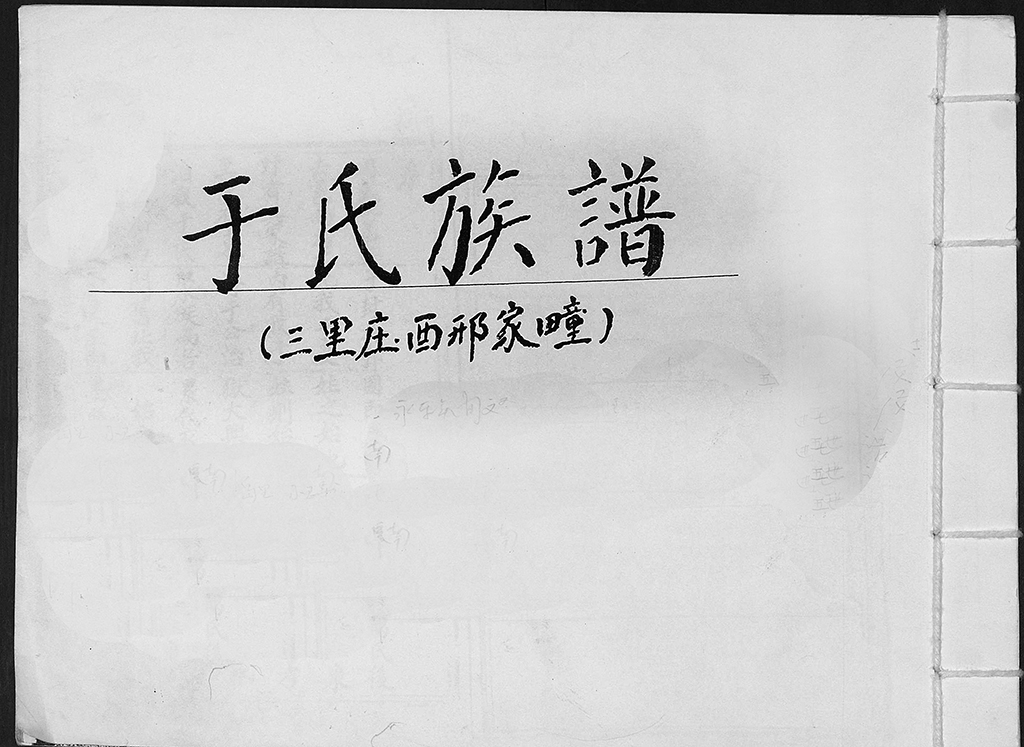 于氏族譜
(三里庄.酉邢家疃)